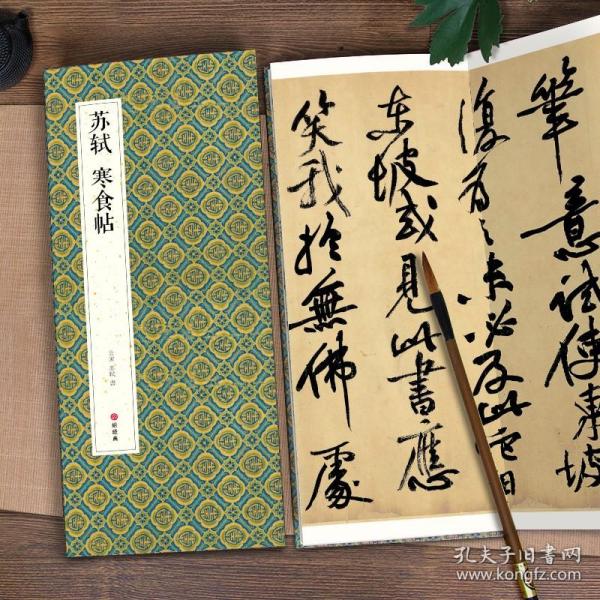 苏轼 寒食帖
筆意試使東坡
復為之未必及此它日
東坡或見此書應
笑我於無佛處
孔夫子旧书网
www.kongfz.com